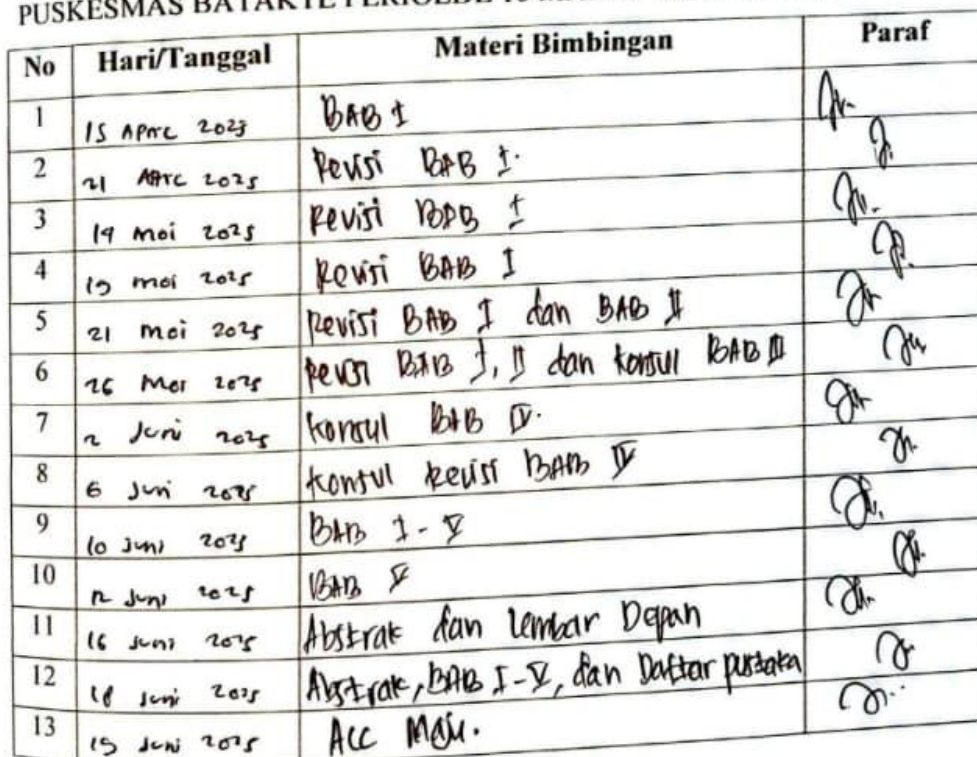 PUSKESMAS BATAKTE PERIOEDE
No Hari/Tanggal Materi Bimbingan Paraf
1 15 April 2025 BAB I
2 21 April 2025 Revisi BAB I.
3 19 mei 2025 Revisi BAB I
4 19 mei 2025 Revisi BAB I
5 21 mei 2025 Revisi BAB I dan BAB II
6 26 Mei 2025 Revisi BAB I, II dan konsul BAB III
7 2 Juni 2025 Konsul BAB IV.
8 6 Juni 2025 konsul Revisi BAB IV
9 10 Juni 2025 BAB I - V
10 12 Juni 2025 BAB V
11 16 Juni 2025 Abstrak dan Lembar Depan
12 18 Juni 2025 Abstrak, BAB I-V, dan Daftar pustaka
13 19 Juni 2025 Acc Maju.